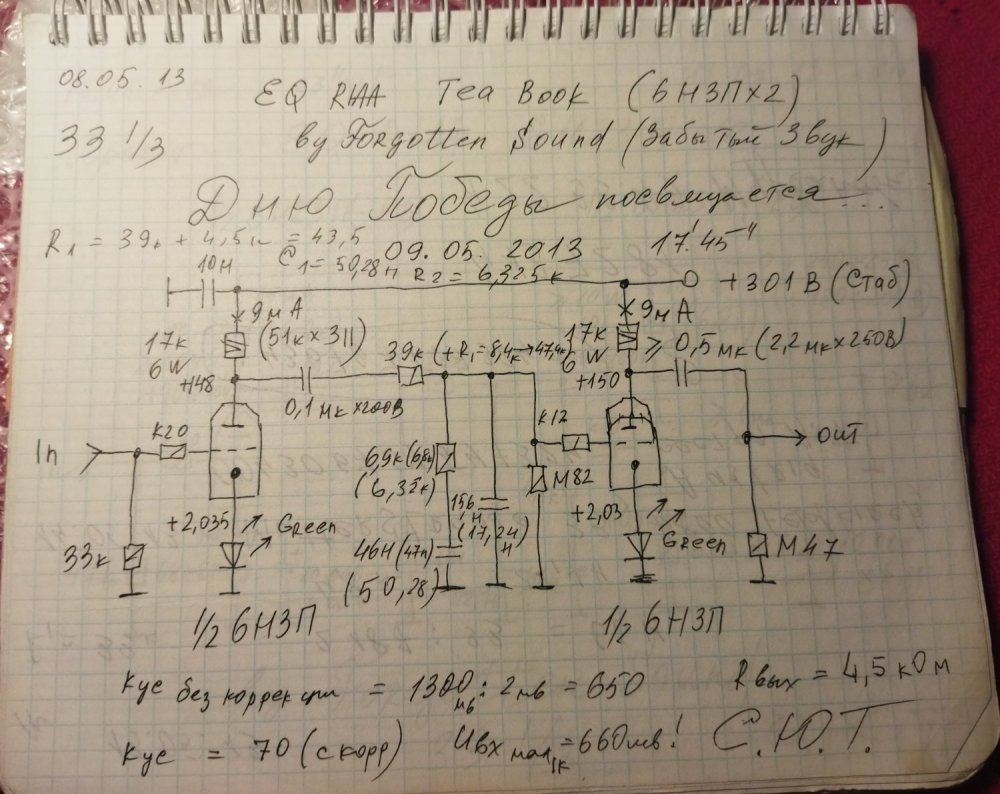 08.05.13
EQ RIAA Tea Book (6Н3Пх2)
33 1/3
by Forgotten Sound (Забытый Звук)
Дню Победы посвящается...
R1 = 39к + 4,5к = 43,5
09.05.2013
17'45"
C1 = 50,28н R2 = 6,325к
10н
+301 В (Стаб)
9мА
9мА
17к
6W
(51к x 3||)
39к (+R1=8,4к→47,4к)
17к
6W
≥ 0,5мк (2,2мк x 250В)
+148
+150
0,1мк x 200В
к20
к12
In
out
6,9к (6,8к)
(6,35к)
М82
+2,035
Green
15н
(17,24н)
+2,03
Green
33к
46н (47н)
(50,28)
М47
1/2 6Н3П
1/2 6Н3П
Кус без коррекции = 1300мв : 2мв = 650
Rвых = 4,5 кОм
Кус = 70 (с корр)
Uвх мах 1к = 660мв!
С.Ю.Т.